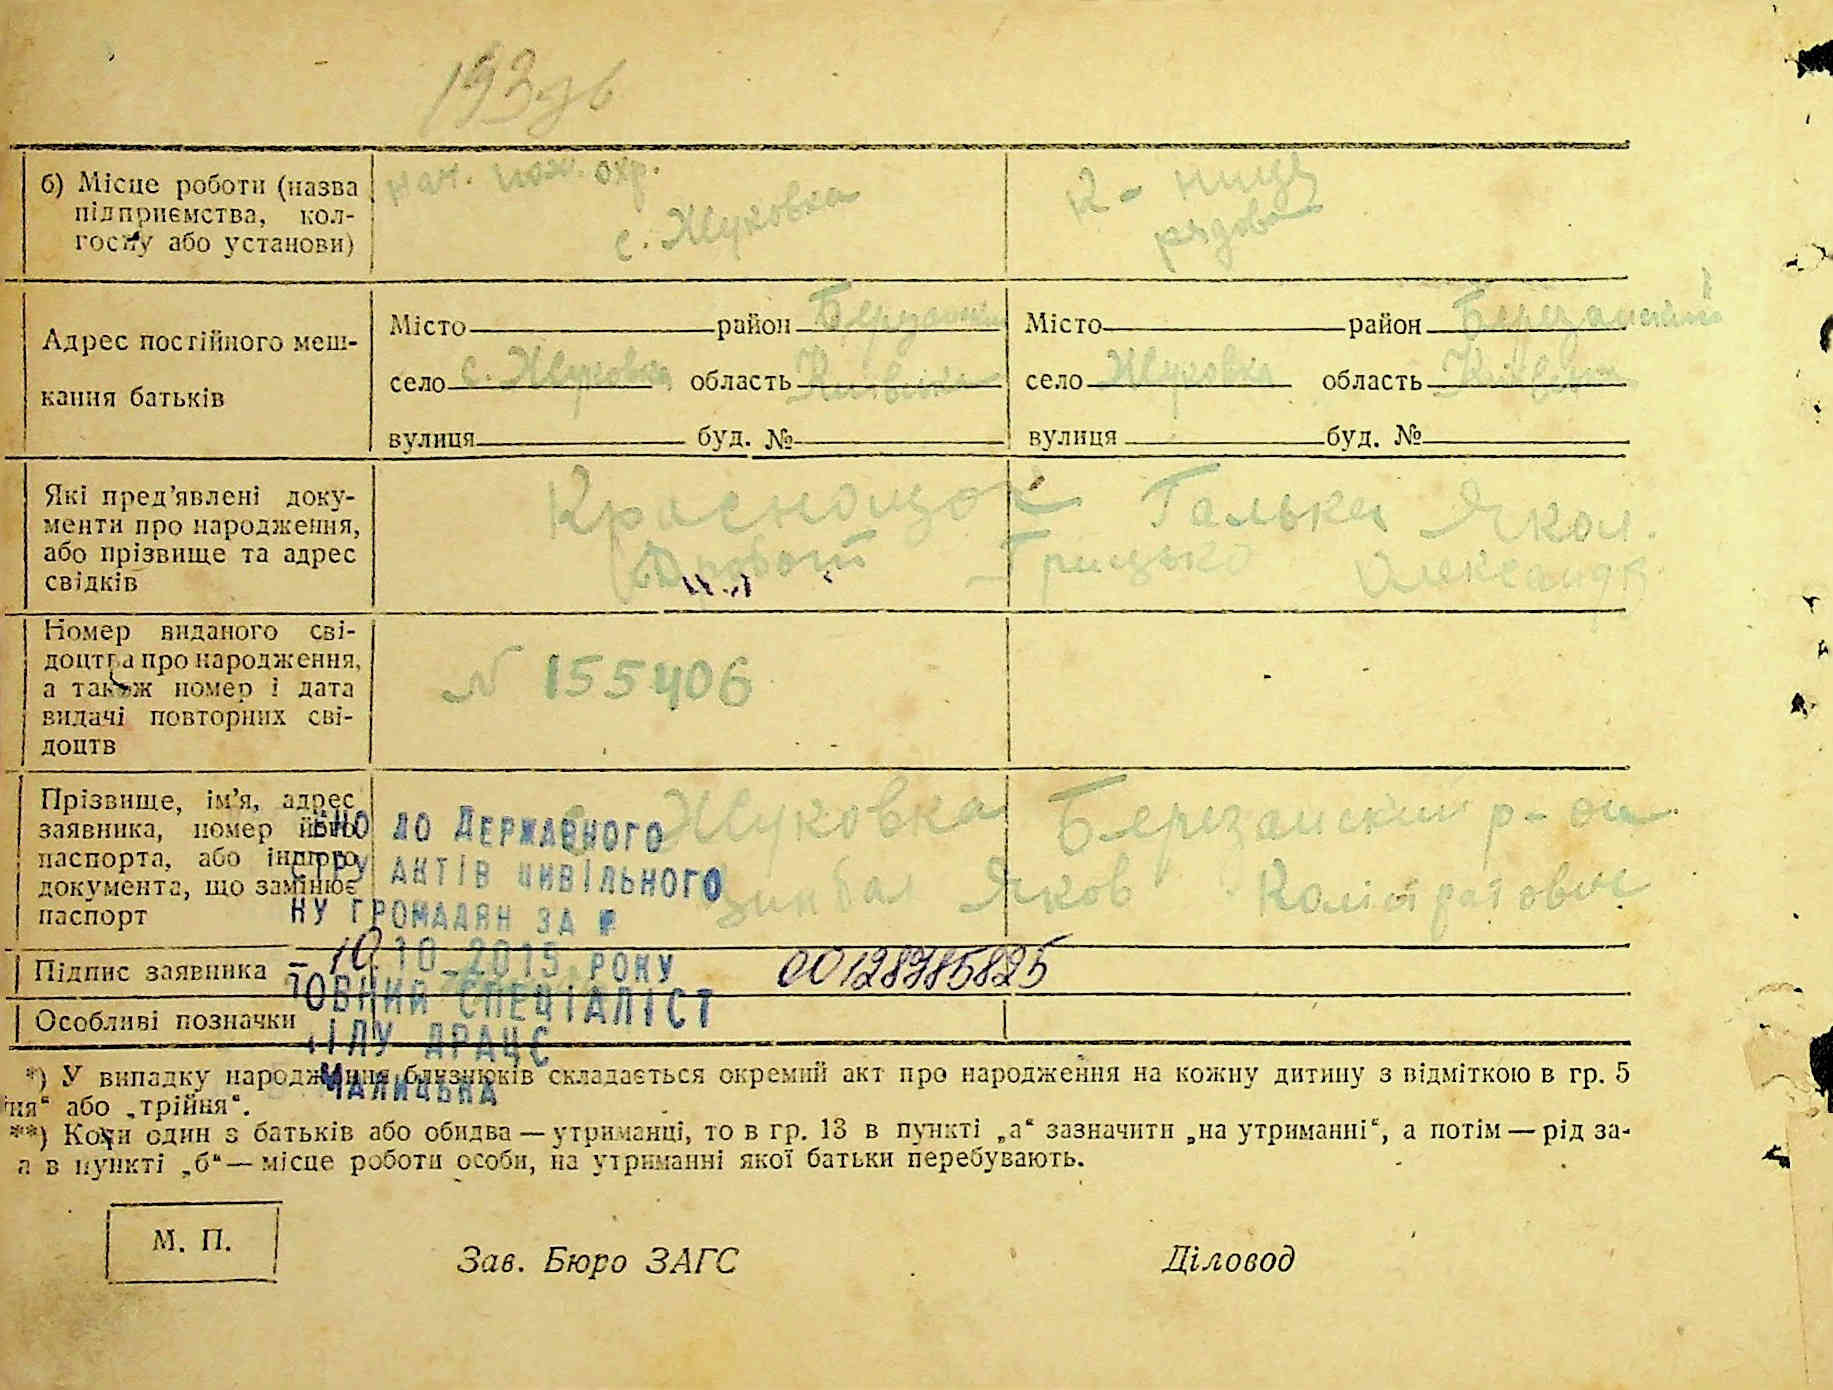 193
б) Місце роботи (назва
підприємства, кол-
госпу або установи)
нач. пож. охр.
с. Жуковка
к-ниця
рядова
Адрес постійного меш-
кання батьків
Місто район Березанський
село с. Жуковка область Київська
вулиця буд. №
Місто район Березанський
село Жуковка область Київська
вулиця буд. №
Які пред’явлені доку-
менти про народження,
або прізвище та адрес
свідків
Краснощок Галька Яков.
Дробот Грицько Олександр
Номер виданого сві-
доцтва про народження,
а також номер і дата
видачі повторних сві-
доцтв
N 155406
Прізвище, ім’я, адрес
заявника, номер його
паспорта, або іншого
документа, що замінює
паспорт
с. Жуковка Березанский р-он
Яков Калістратович
ЕНО ДО ДЕРЖАВНОГО
СТРУ АКТІВ ЦИВІЛЬНОГО
НУ ГРОМАДЯН ЗА №
10.10-2015 РОКУ 00128985825
ЛОВНИЙ СПЕЦІАЛІСТ
ІЛУ ДРАЦС
ЧАЛИЦЬКА
Підпис заявника
Особливі позначки
*) У випадку народження близнюків складається окремий акт про народження на кожну дитину з відміткою в гр. 5
ня“ або „трійня“.
**) Коли один з батьків або обидва — утриманці, то в гр. 13 в пункті „а“ зазначити „на утриманні“, а потім — рід за-
а в пункті „б“ — місце роботи особи, на утриманні якої батьки перебувають.
М. П.
Зав. Бюро ЗАГС
Діловод